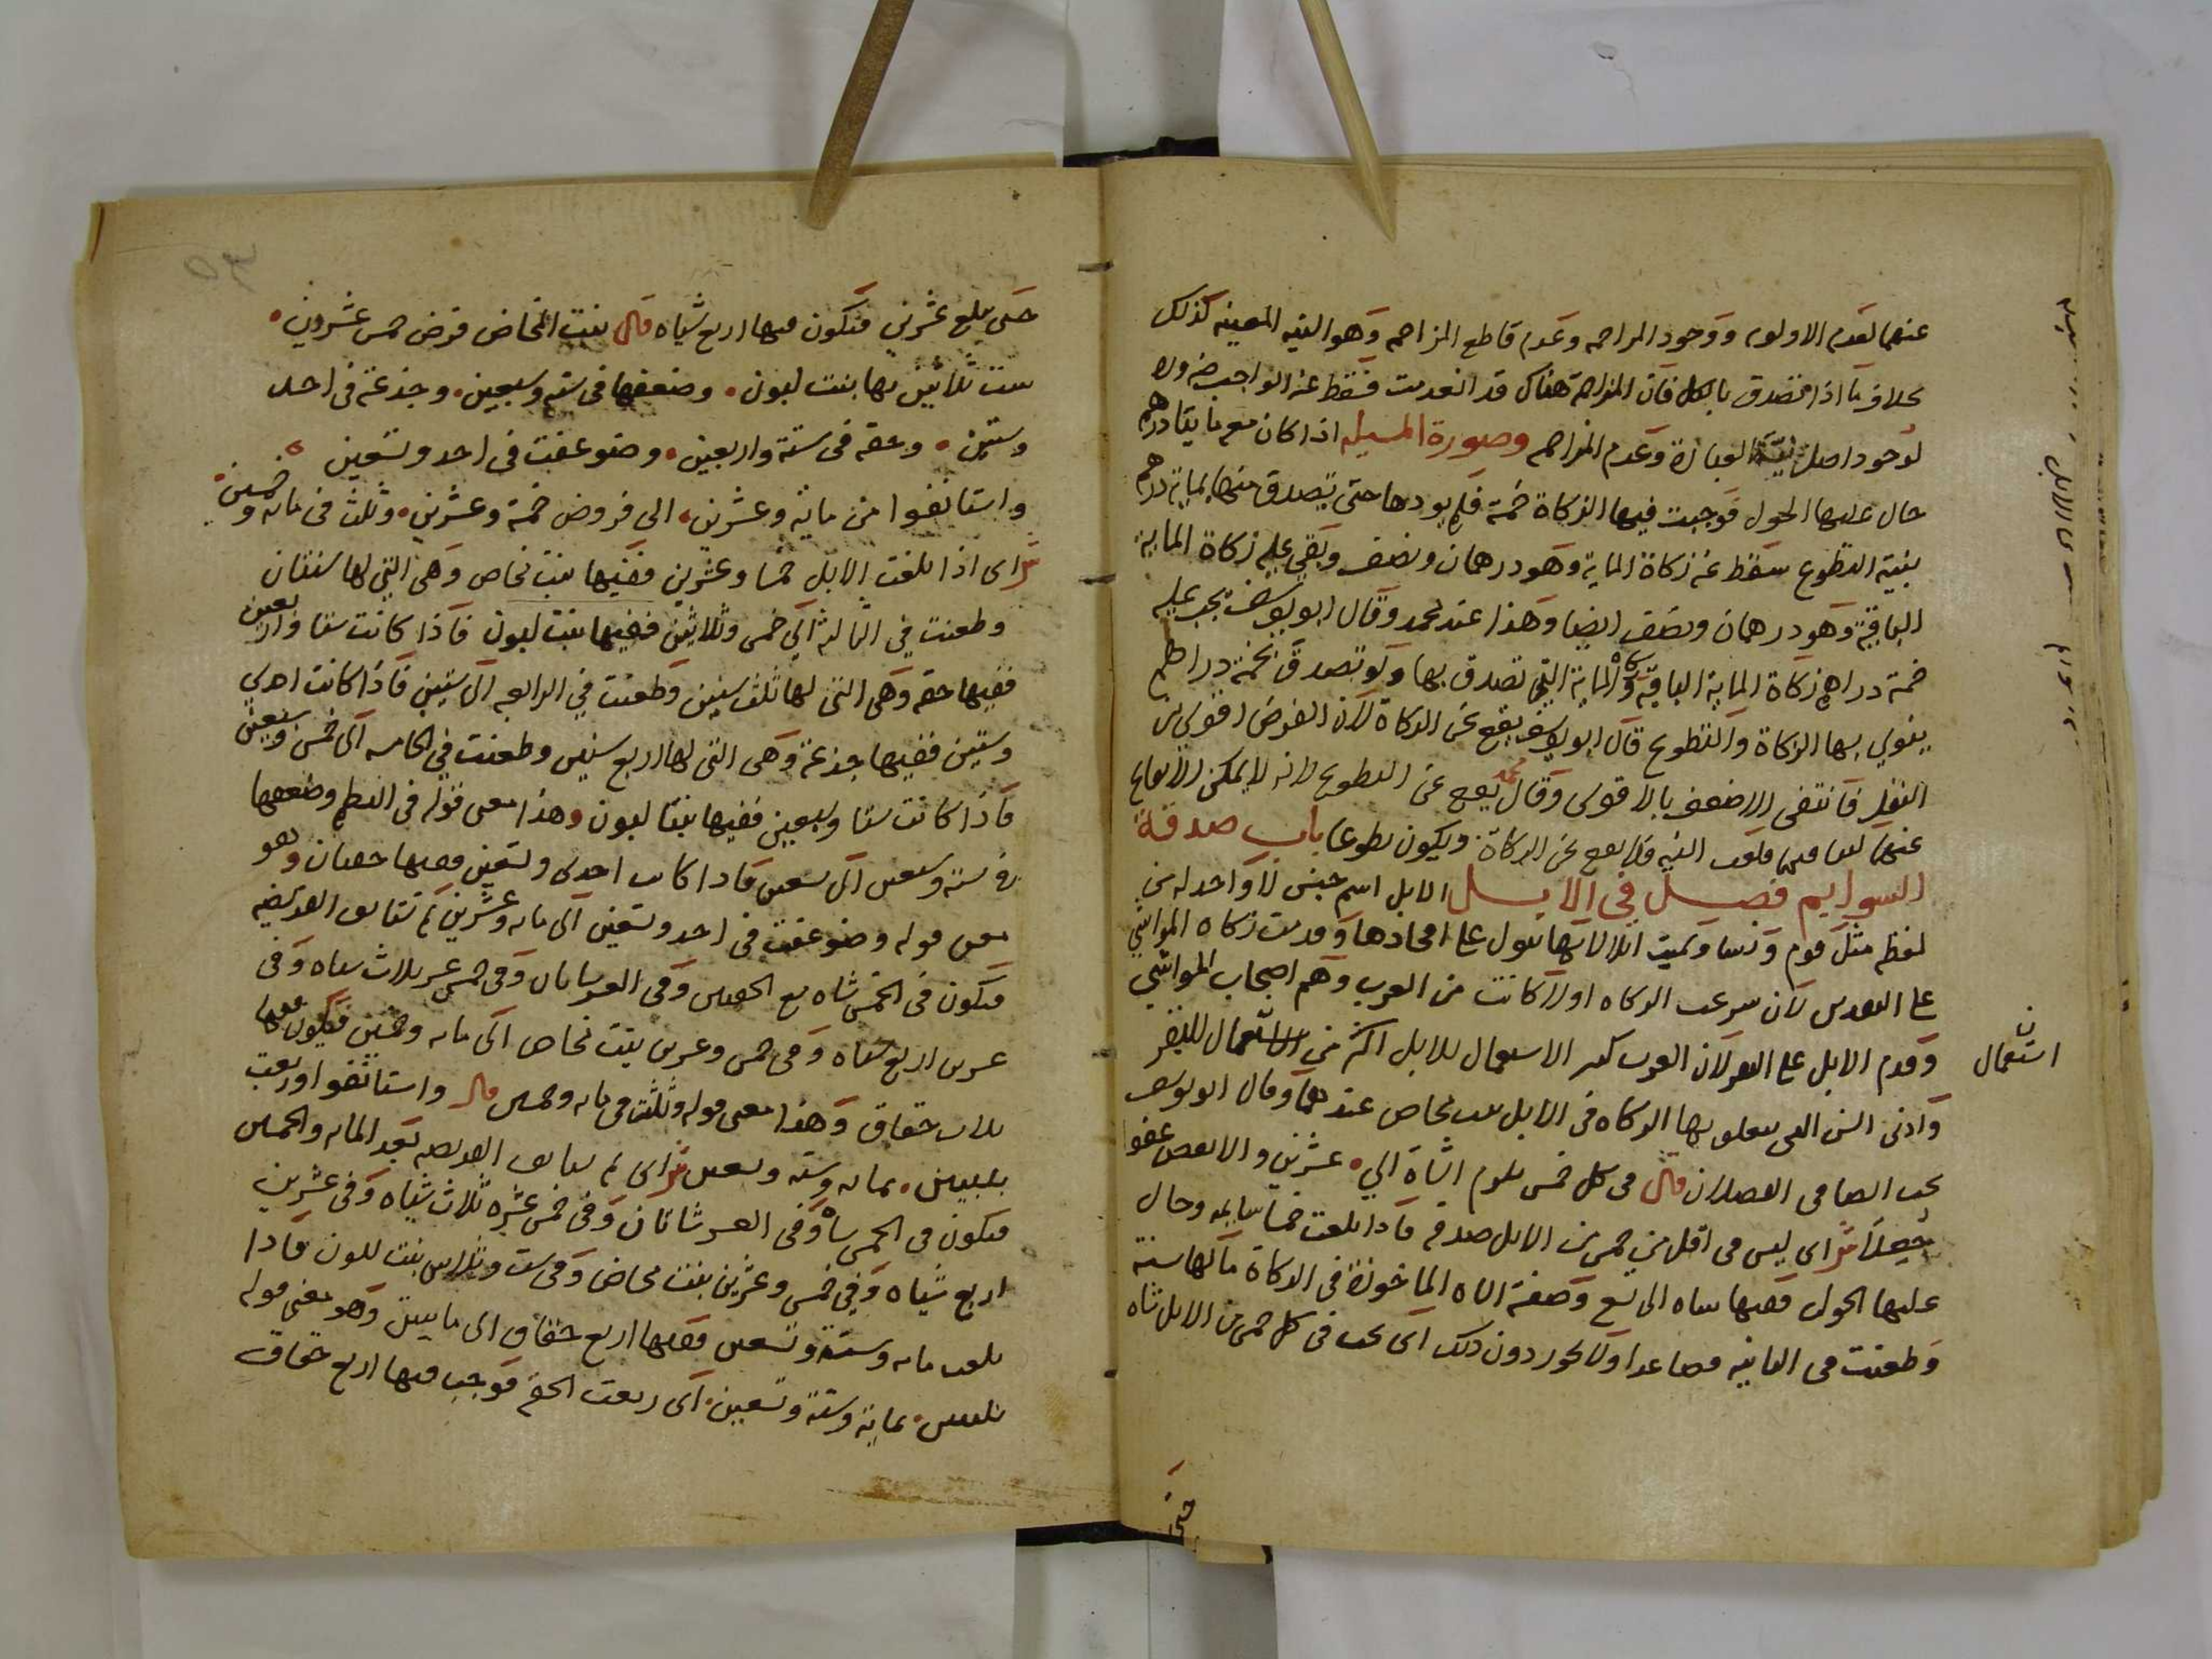 عنهما لعدم الاولوية ووجود المزاحمة وعدم قاطع المزاحمة وهو النية المعينة كذلك
بخلاف ما اذا تصدق بالكل فان المزاحمة هناك قد انعدمت فسقط عنه الواجب ضرورة
لوجود اصل نية العبادة وعدم المزاحم وصورة المسيلة اذا كان معه مايتا درهم
حال عليها الحول فوجبت فيها الزكاة خمسة فلم يودها حتى تصدق منها بماية درهم
بنية التطوع سقط عنه زكاة الماية وهو درهمان ونصف وبقي عليه زكاة الماية
الباقية وهو درهمان ونصف ايضا وهذا عند محمد وقال ابو يوسف يجب عليه
خمسة دراهم زكاة الماية الباقية وزكاة الماية التي تصدق بها ولو تصدق بخمسة دراهم
ينوي بها الزكاة والتطوع قال ابو يوسف يقع عن الزكاة لان الفرض اقوى من
النفل فانتفى الاضعف بالاقوى وقال محمد يقع عن التطوع لانه لا يمكن الايقاع
عنهما فلغت النية فلا يقع عن الزكاة ويكون تطوعا باب صدقة
السوايم فصل في الابل الابل اسم جنس لا واحد له من
لفظه مثل قوم ونسا وسميت ابلا لانها تبول على افخاذها وقدمت زكاة المواشي
على النقدين لان شرعية الزكاة اولا كانت من العرب وهم اصحاب المواشي
وقدم الابل على البقر لان العرب كثير الاستعمال للابل اكثر من الاستعمال للبقر
استعمال ن
وادنى السن التي يتعلق بها الزكاة في الابل بنت مخاض عندهما وقال ابو يوسف
يجب ايضا في الفصلان قال في كل خمس تلزم الشاة الي عشرين والابعض عفوا
جعلا ش اى ليس في اقل من خمس من الابل صدقة فاذا بلغت خمسا سايمة وحال
عليها الحول ففيها شاة الى تسع وصفة الشاة الماخوذة في الزكاة ما لها سنة
وطعنت في الثانية فصاعدا ولا يجوز دون ذلك اى يجب في كل خمس من الابل شاة
حتى
حتى يبلغ عشرين فتكون فيها اربع شياه قال بنت المخاض فرض خمس عشرون
ست ثلاثين بها بنت لبون وضعفها في ستة وسبعين وجذعة في احد
وستين وحقة في ستة واربعين وضوعفت في احد وتسعين
واستانفوا من ماية وعشرين الى فروض خمسة وعشرين وثلث في ماية وخمسين
ش اى اذا بلغت الابل خمسا وعشرين ففيها بنت مخاض وهي التي لها سنتان
وطعنت في الثالثة الى خمس وثلاثين ففيها بنت لبون فاذا كانت ستا واربعين
ففيها حقة وهي التي لها ثلث سنين وطعنت في الرابعة الى ستين فاذا كانت احدى
وستين ففيها جذعة وهي التي لها اربع سنين وطعنت في الخامسة الى خمس وسبعين
فاذا كانت ستا وسبعين ففيها بنتا لبون وهذا معنى قوله في النظم وضعفها
في ستة وسبعين الى تسعين فاذا كانت احدى وتسعين ففيها حقتان وهو
معنى قوله وضوعفت في احد وتسعين الى ماية وعشرين ثم تستانف الفريضة
فتكون في الخمس شاة مع الحقتين وفي العشر شاتان وفي خمس عشر ثلاث شياه وفي
عشرين اربع شياه وفي خمس وعشرين بنت مخاض الى ماية وخمسين فيكون فيها
ثلاث حقاق وهذا معنى قوله وثلث في ماية وخمسين قال واستانفوا وربعت
بماية وستة وتسعين ش اى ثم تستانف الفريضة بعد الماية والخمسين
فتكون في الخمس شاة وفي العشر شاتان وفي خمس عشرة ثلاث شياه وفي عشرين
اربع شياه وفي خمس وعشرين بنت مخاض وفي ست وثلاثين بنت لبون فاذا
بلغت ماية وستة وتسعين ففيها اربع حقاق الى مايتين وهو معنى قوله
بماية وستة وتسعين اى ربعت الحقة فوجب فيها اربع حقاق
٥٣